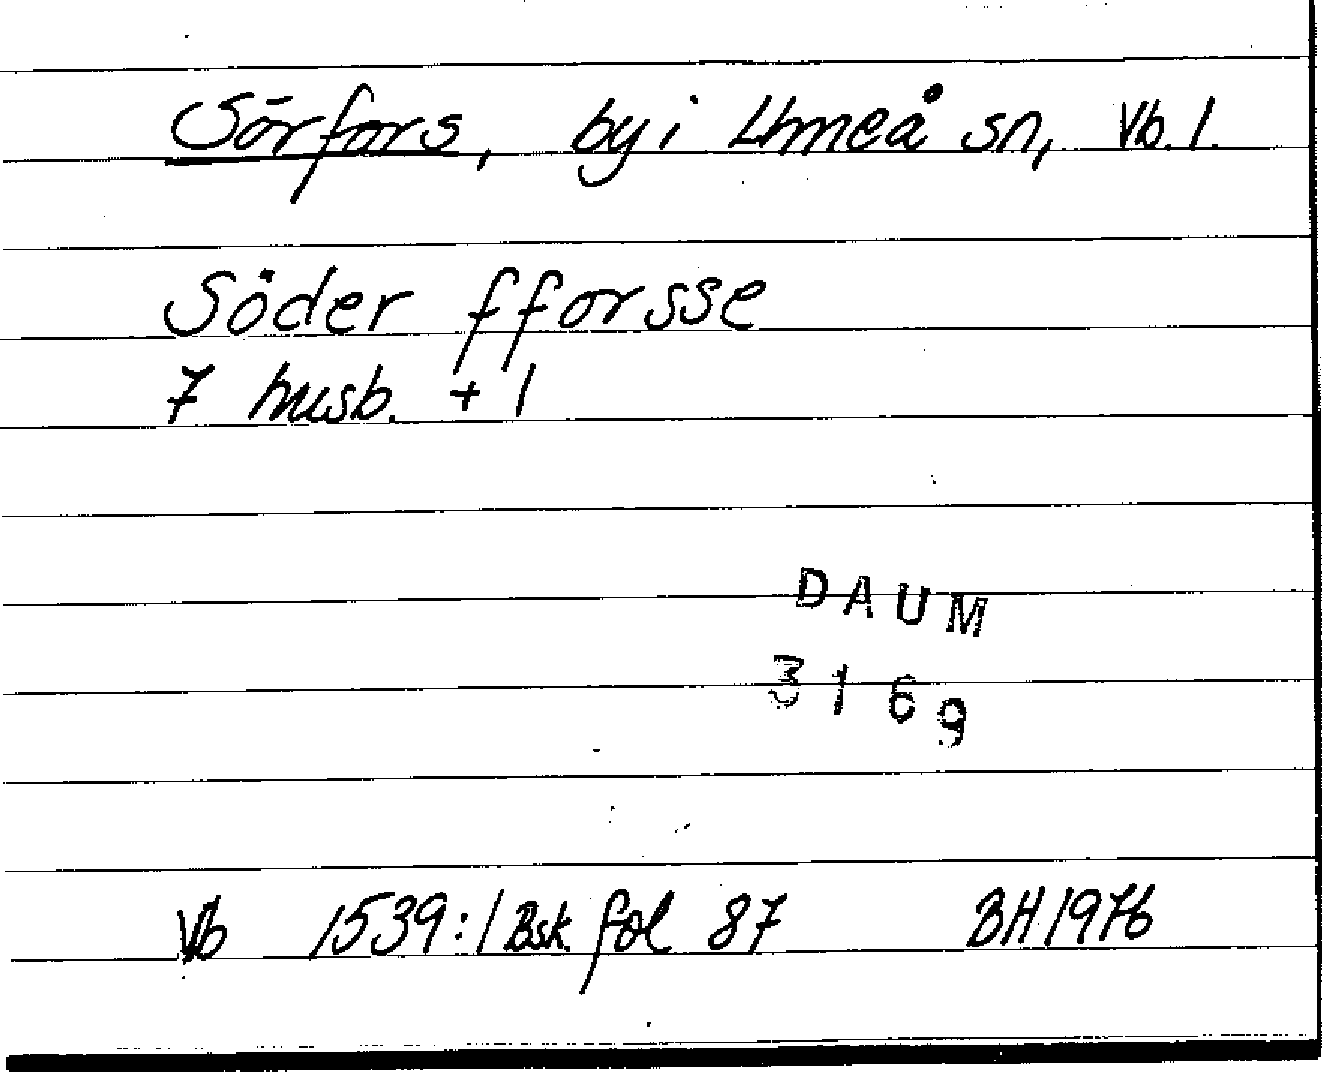 Sörfors, by i Umeå sn, Vb. l.
Söder fforsse
7 husb. + 1
DAUM
3169
Vb 1539:1 Bsk. fol 87 BH 1976